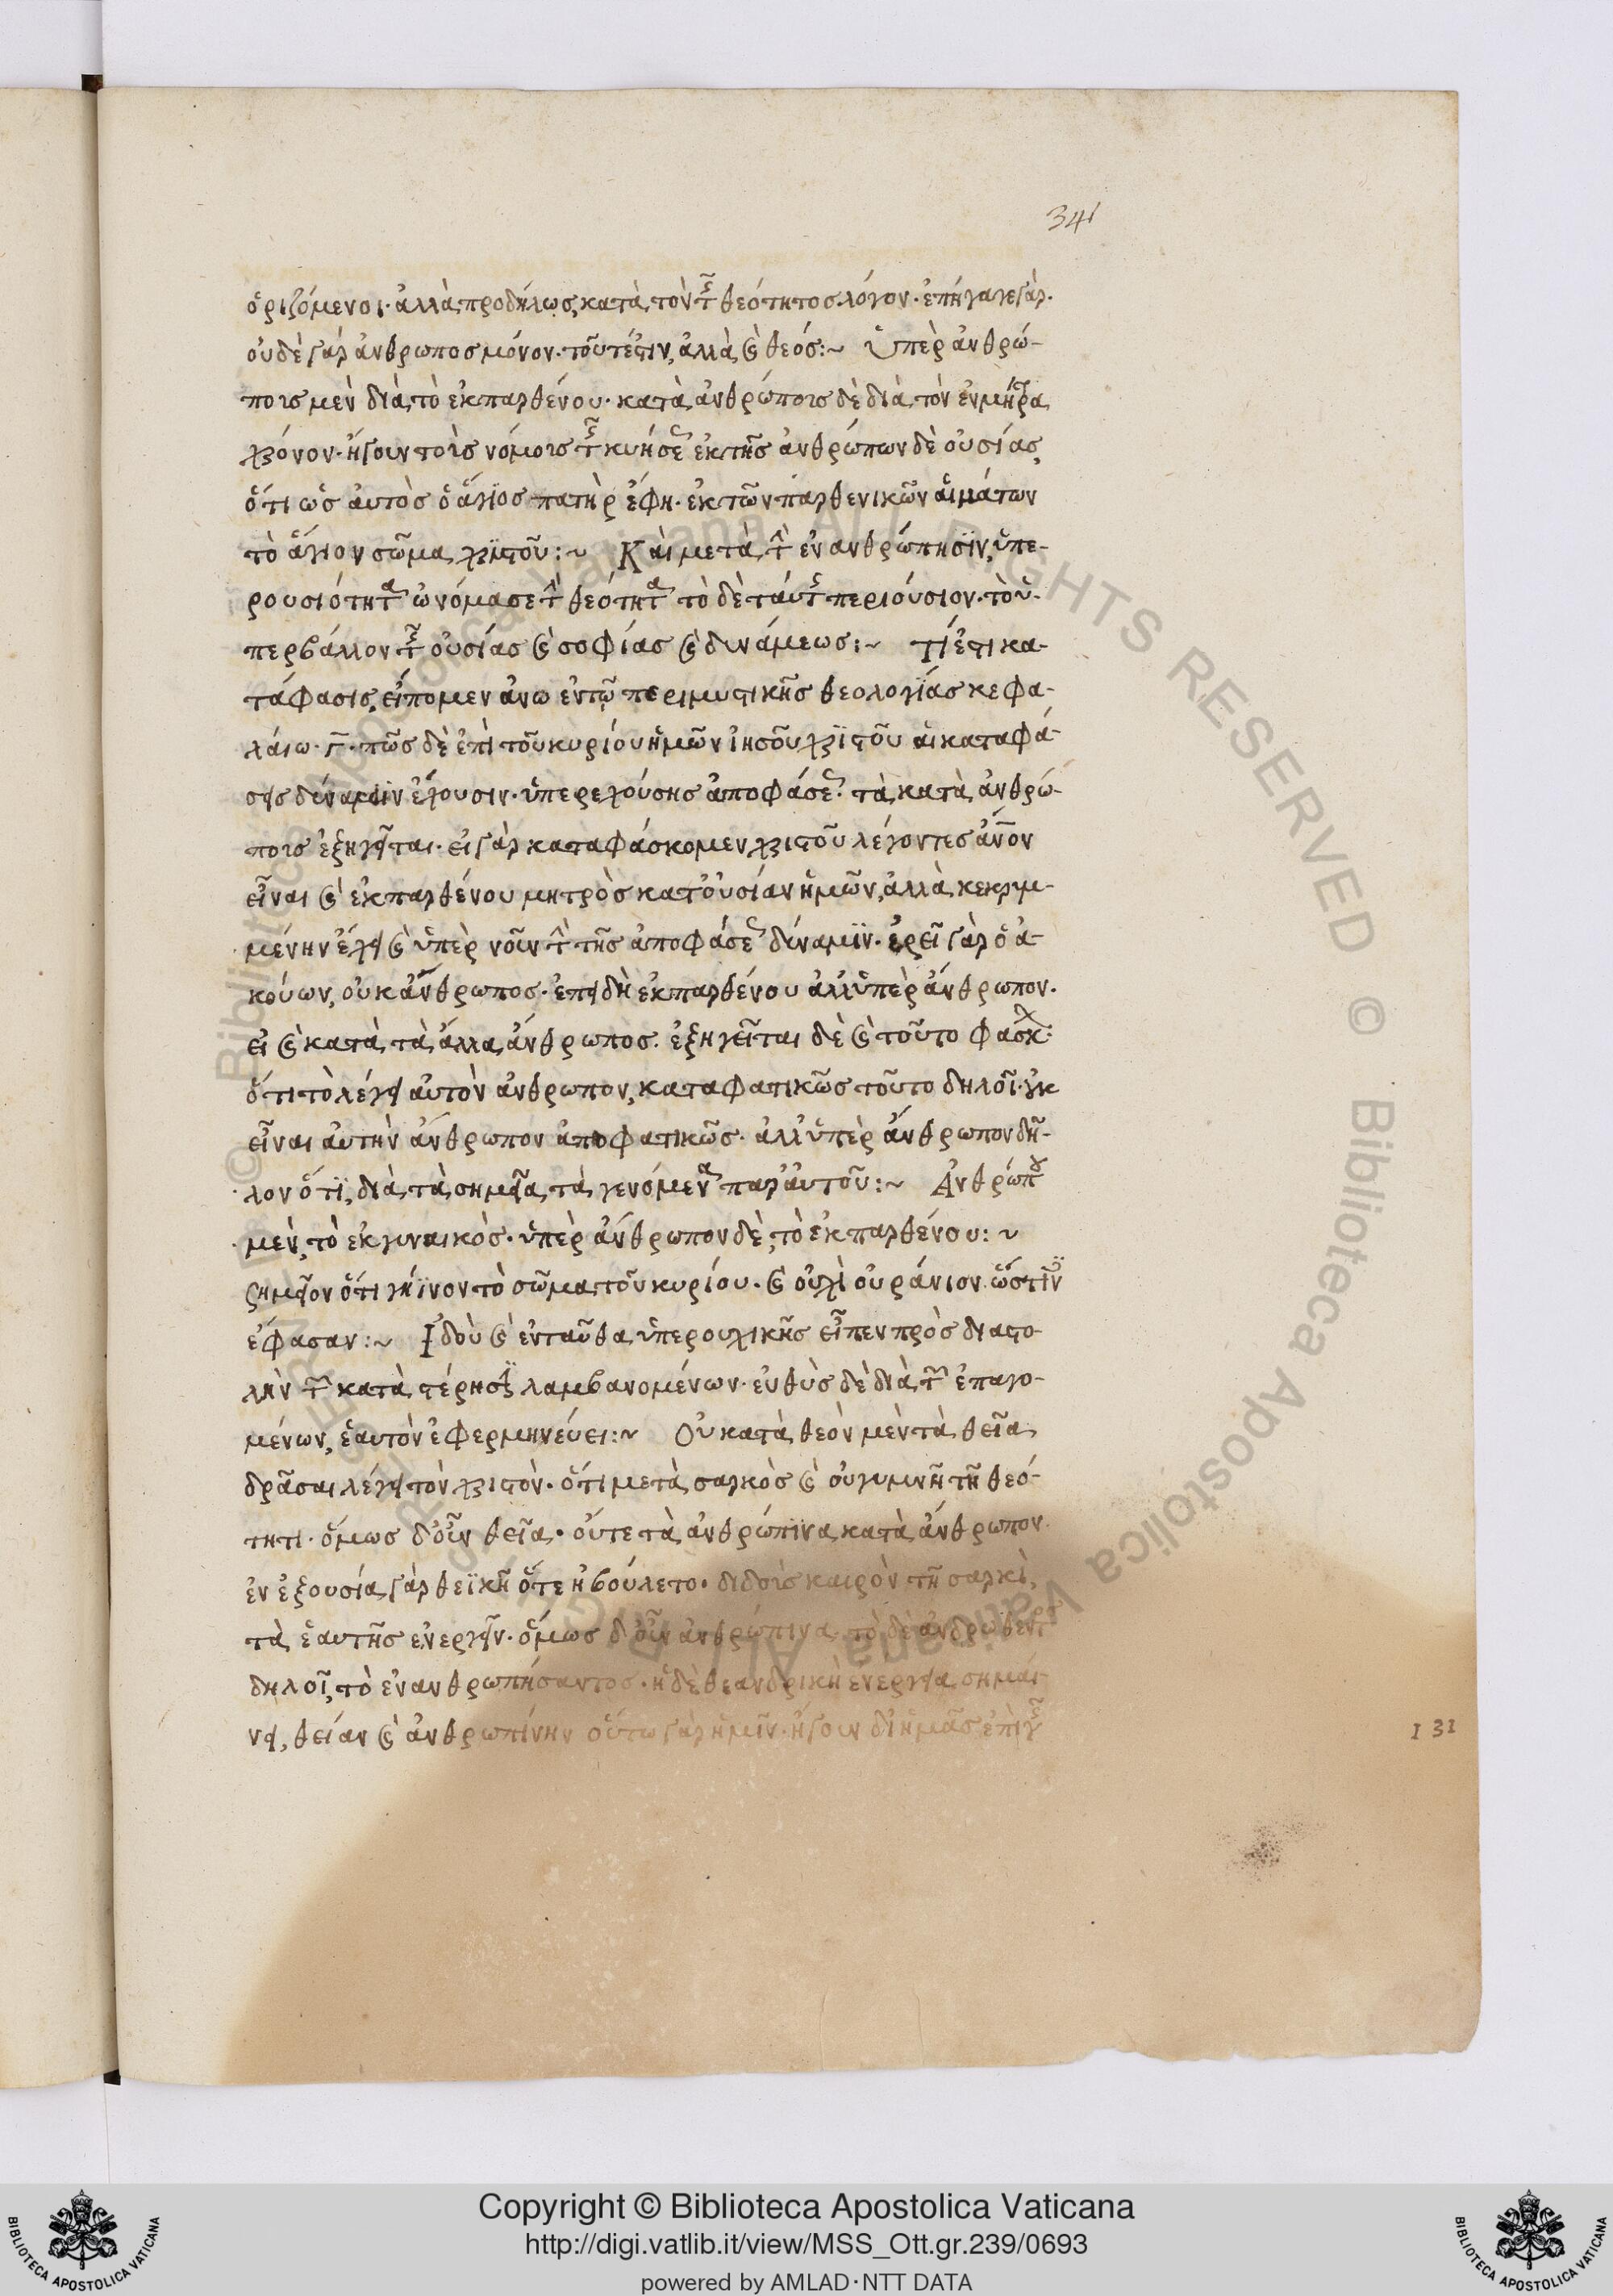 341
ὁριζόμενοι· ἀλλὰ προδήλως κατὰ τὸν τῆς θεότητος λόγον· ἐπήγαγε γάρ·
οὐδὲ γὰρ ἄνθρωπος μόνον· τουτέστιν, ἀλλὰ καὶ θεός:~ Ὑπὲρ ἀνθρώ-
ποις μὲν διὰ τὸ ἐκ παρθένου· κατὰ ἀνθρώποις δὲ διὰ τὸν ἐν μήτρα
χρόνον· ἤγουν τοῖς νόμοις τῆς κυήσεως ἐκ τῆς ἀνθρώπων δὲ οὐσίας
ὅτι ὡς αὐτὸς ὁ ἅγιος πατὴρ ἔφη· ἐκ τῶν παρθενικῶν αἱμάτων
τὸ ἅγιον σῶμα χριστοῦ:~ Καὶ μετὰ τὴν ἐνανθρώπησιν, ὑπε-
ρουσιότητα ὠνόμασε τὴν θεότητα τὸ δὲ ταύτης περιούσιον· τὸ ὑ-
περβάλλον τῆς οὐσίας καὶ σοφίας καὶ δυνάμεως:~ Τί ἐστι κα-
τάφασις, εἴπομεν ἄνω ἐν τῷ περὶ μυστικῆς θεολογίας κεφα-
λαίω· Γ· πῶς δὲ ἐπὶ τοῦ κυρίου ἡμῶν ἰησοῦ χριστοῦ αἱ καταφά-
σεις δύναμιν ἔχουσιν· ὑπερεχούσης ἀποφάσεως· τὰ κατὰ ἀνθρώ-
ποις ἐξηγεῖται· εἰ γὰρ καταφάσκομεν χριστοῦ λέγοντες ἄνον
εἶναι καὶ ἐκ παρθένου μητρὸς κατ' οὐσίαν ἡμῶν, ἀλλὰ κεκρυμ-
μένην ἔχει καὶ ὑπὲρ νοῦν τὴν τῆς ἀποφάσεως δύναμιν· ἐρεῖ γὰρ ὁ ἀ-
κούων, οὐκ ἄνθρωπος· ἐπειδὴ ἐκ παρθένου ἀλλ' ὑπὲρ ἄνθρωπον·
εἰ καὶ κατὰ τὰ ἄλλα ἄνθρωπος· ἐξηγεῖται δὲ καὶ τοῦτο φάσκων·
ὅτι τὸ λέγειν αὐτὸν ἄνθρωπον, καταφατικῶς τοῦτο δηλοῖ· οὐκ
εἶναι αὐτὴν ἄνθρωπον ἀποφατικῶς· ἀλλ' ὑπὲρ ἄνθρωπον δῆ-
λον ὅτι, διὰ τὰ σημεῖα, τὰ γενόμενα παρ' αὐτοῦ:~ Ἀνθρώπου
μὲν, τὸ ἐκ γυναικός· ὑπὲρ ἄνθρωπον δὲ, τὸ ἐκ παρθένου:~
Σημεῖον ὅτι γήϊνον τὸ σῶμα τοῦ κυρίου· καὶ οὐχὶ οὐράνιον· ὥς τινες
ἔφασαν:~ Ἰδοὺ καὶ ἐνταῦθα ὑπερουχικῆς εἶπεν πρὸς διαστο-
λὴν τῶν κατὰ στέρησιν λαμβανομένων· εὐθὺς δὲ διὰ τῶν ἐπαγο-
μένων, ἑαυτὸν ἐφερμηνεύει:~ Οὐ κατὰ θεὸν μὲν τὰ θεῖα
δρᾶσαι λέγει τὸν χριστόν· ὅτι μετὰ σαρκὸς καὶ οὐ γυμνῇ τῇ θεό-
τητι· ὅμως δ' οὖν θεῖα· οὔτε τὰ ἀνθρώπινα κατὰ ἄνθρωπον·
ἐν ἐξουσία γὰρ θεϊκῇ ὅτε ἠβούλετο· διδοὺς καιρὸν τῇ σαρκὶ,
τὰ ἑαυτῆς ἐνεργεῖν· ὅμως δ' οὖν ἀνθρώπινα· τὸ δὲ ἀνδρωθέντος
δηλοῖ, τὸ ἐνανθρωπήσαντος· ἡ δὲ θεανδρικὴ ἐνέργεια σημαί-
νει, θείαν καὶ ἀνθρωπίνην οὕτω γὰρ ἡμῖν· ἤγουν δι' ἡμᾶς ἐπὶ γῆς
131
Copyright © Biblioteca Apostolica Vaticana
http://digi.vatlib.it/view/MSS_Ott.gr.239/0693
powered by AMLAD·NTT DATA